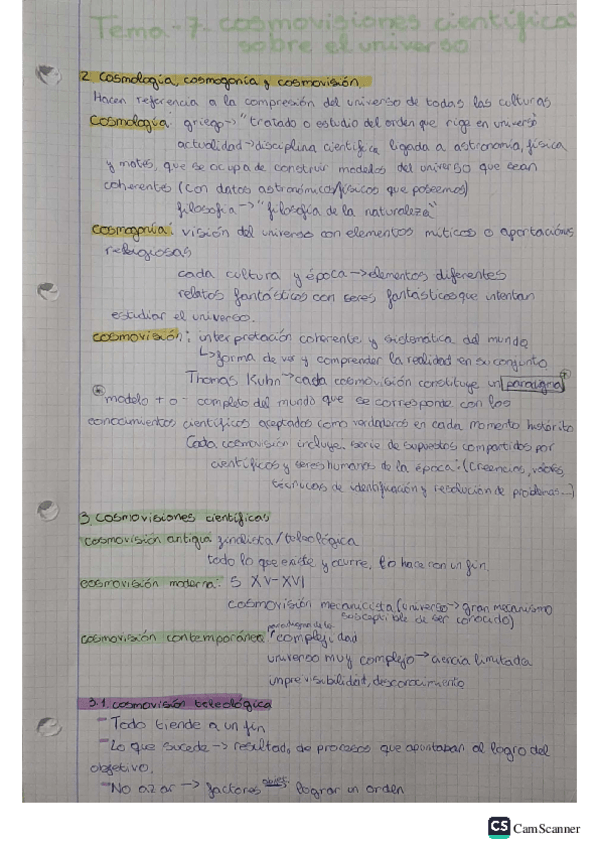 Tema-7. cosmovisiones científicas
sobre el universo
2. cosmología, cosmogonía y cosmovisión.
Hacen referencia a la compresión del universo de todas las culturas
cosmología: griego→"tratado o estudio del orden que rige en universo"
actualidad→disciplina científica ligada a astronomía, física
y mates, que se ocupa de construir modelos del universo que sean
coherentes (con datos astronómicos/físicos que poseemos)
filosofía→"filosofía de la naturaleza"
cosmogonía: visión del universo con elementos míticos o aportaciones
religiosas
cada cultura y época→elementos diferentes
relatos fantásticos con seres fantásticos que intentan
estudiar el universo.
cosmovisión: interpretación coherente y sistemática del mundo
↳forma de ver y comprender la realidad en su conjunto
Thomas Kuhn→cada cosmovisión constituye un paradigma*
* modelo + o - completo del mundo que se corresponde con los
conocimientos científicos aceptados como verdaderos en cada momento histórico
Cada cosmovisión incluye serie de supuestos compartidos por
científicos y seres humanos de la época: (creencias, valores,
técnicas de identificación y resolución de problemas...)
3 cosmovisiones científicas
cosmovisión antigua: finalista/teleológica
todo lo que existe y ocurre, lo hace con un fin.
cosmovisión moderna: S XV-XVI
cosmovisión mecanicista (universo→gran mecanismo
susceptible de ser conocido)
cosmovisión contemporánea: paradigma de la complejidad
universo muy complejo→ciencia limitada
imprevisibilidad, desconocimiento
3.1. cosmovisión teleológica
- Todo tiende a un fin
- Lo que sucede→resultado de procesos que apuntaban al logro del
objetivo.
- No azar→factores lograr un orden
CS CamScanner